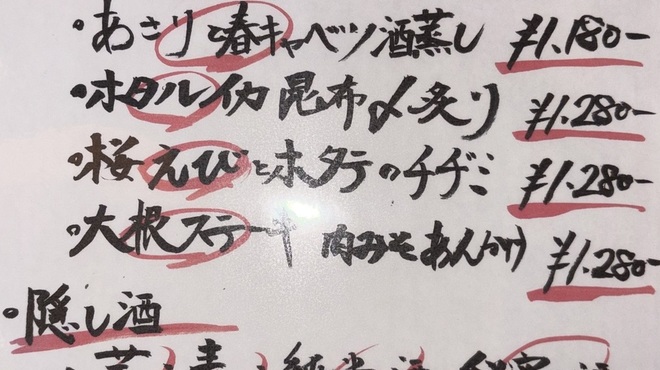 ・あさりと春キャベツ酒蒸し ¥1.180-
・ホタルイカ昆布〆炙り ¥1.280-
・桜えびとホタテのチヂミ ¥1.280-
・大根ステーキ 肉みそあんかけ ¥1.280-
・隠し酒